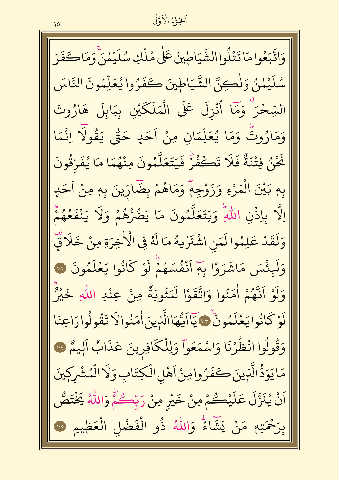 الجزء الأول
١٥
وَاتَّبَعُوا مَا تَتْلُوا الشَّيَاطِينُ عَلَى مُلْكِ سُلَيْمٰنَ وَمَا كَفَرَ
سُلَيْمٰنُ وَلٰكِنَّ الشَّيَاطِينَ كَفَرُوا يُعَلِّمُونَ النَّاسَ
السِّحْرَ وَمَا أُنْزِلَ عَلَى الْمَلَكَيْنِ بِبَابِلَ هَارُوتَ
وَمَارُوتَ وَمَا يُعَلِّمَانِ مِنْ أَحَدٍ حَتَّى يَقُولَا إِنَّمَا
نَحْنُ فِتْنَةٌ فَلَا تَكْفُرْ فَيَتَعَلَّمُونَ مِنْهُمَا مَا يُفَرِّقُونَ
بِهِ بَيْنَ الْمَرْءِ وَزَوْجِهِ وَمَا هُمْ بِضَارِّينَ بِهِ مِنْ أَحَدٍ
إِلَّا بِإِذْنِ اللّٰهِ وَيَتَعَلَّمُونَ مَا يَضُرُّهُمْ وَلَا يَنْفَعُهُمْ
وَلَقَدْ عَلِمُوا لَمَنِ اشْتَرٰيهُ مَا لَهُ فِي الْاٰخِرَةِ مِنْ خَلَاقٍ
وَلَبِئْسَ مَا شَرَوْا بِهِ أَنْفُسَهُمْ لَوْ كَانُوا يَعْلَمُونَ
وَلَوْ أَنَّهُمْ اٰمَنُوا وَاتَّقَوْا لَمَثُوبَةٌ مِنْ عِنْدِ اللّٰهِ خَيْرٌ
لَوْ كَانُوا يَعْلَمُونَ يَا أَيُّهَا الَّذِينَ اٰمَنُوا لَا تَقُولُوا رَاعِنَا
وَقُولُوا انْظُرْنَا وَاسْمَعُوا وَلِلْكَافِرِينَ عَذَابٌ أَلِيمٌ
مَا يَوَدُّ الَّذِينَ كَفَرُوا مِنْ أَهْلِ الْكِتَابِ وَلَا الْمُشْرِكِينَ
أَنْ يُنَزَّلَ عَلَيْكُمْ مِنْ خَيْرٍ مِنْ رَبِّكُمْ وَاللّٰهُ يَخْتَصُّ
بِرَحْمَتِهِ مَنْ يَشَاءُ وَاللّٰهُ ذُو الْفَضْلِ الْعَظِيمِ